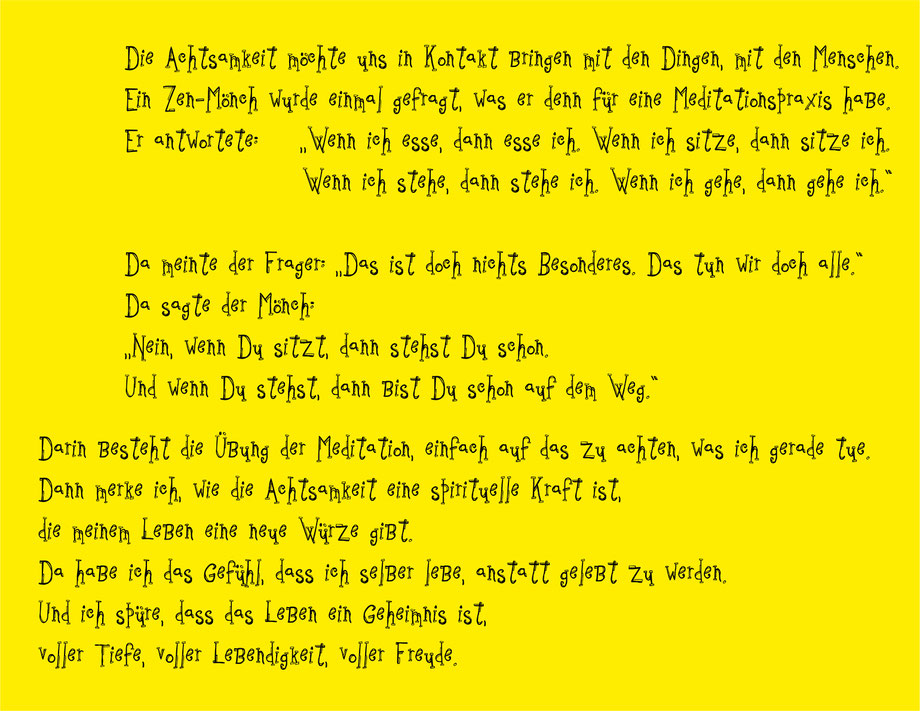 Die Achtsamkeit möchte uns in Kontakt bringen mit den Dingen, mit den Menschen.
Ein Zen-Mönch wurde einmal gefragt, was er denn für eine Meditationspraxis habe.
Er antwortete: „Wenn ich esse, dann esse ich. Wenn ich sitze, dann sitze ich.
Wenn ich stehe, dann stehe ich. Wenn ich gehe, dann gehe ich.“
Da meinte der Frager: „Das ist doch nichts Besonderes. Das tun wir doch alle.“
Da sagte der Mönch:
„Nein, wenn Du sitzt, dann stehst Du schon.
Und wenn Du stehst, dann bist Du schon auf dem Weg.“
Darin besteht die Übung der Meditation, einfach auf das zu achten, was ich gerade tue.
Dann merke ich, wie die Achtsamkeit eine spirituelle Kraft ist,
die meinem Leben eine neue Würze gibt.
Da habe ich das Gefühl, dass ich selber lebe, anstatt gelebt zu werden.
Und ich spüre, dass das Leben ein Geheimnis ist,
voller Tiefe, voller Lebendigkeit, voller Freude.